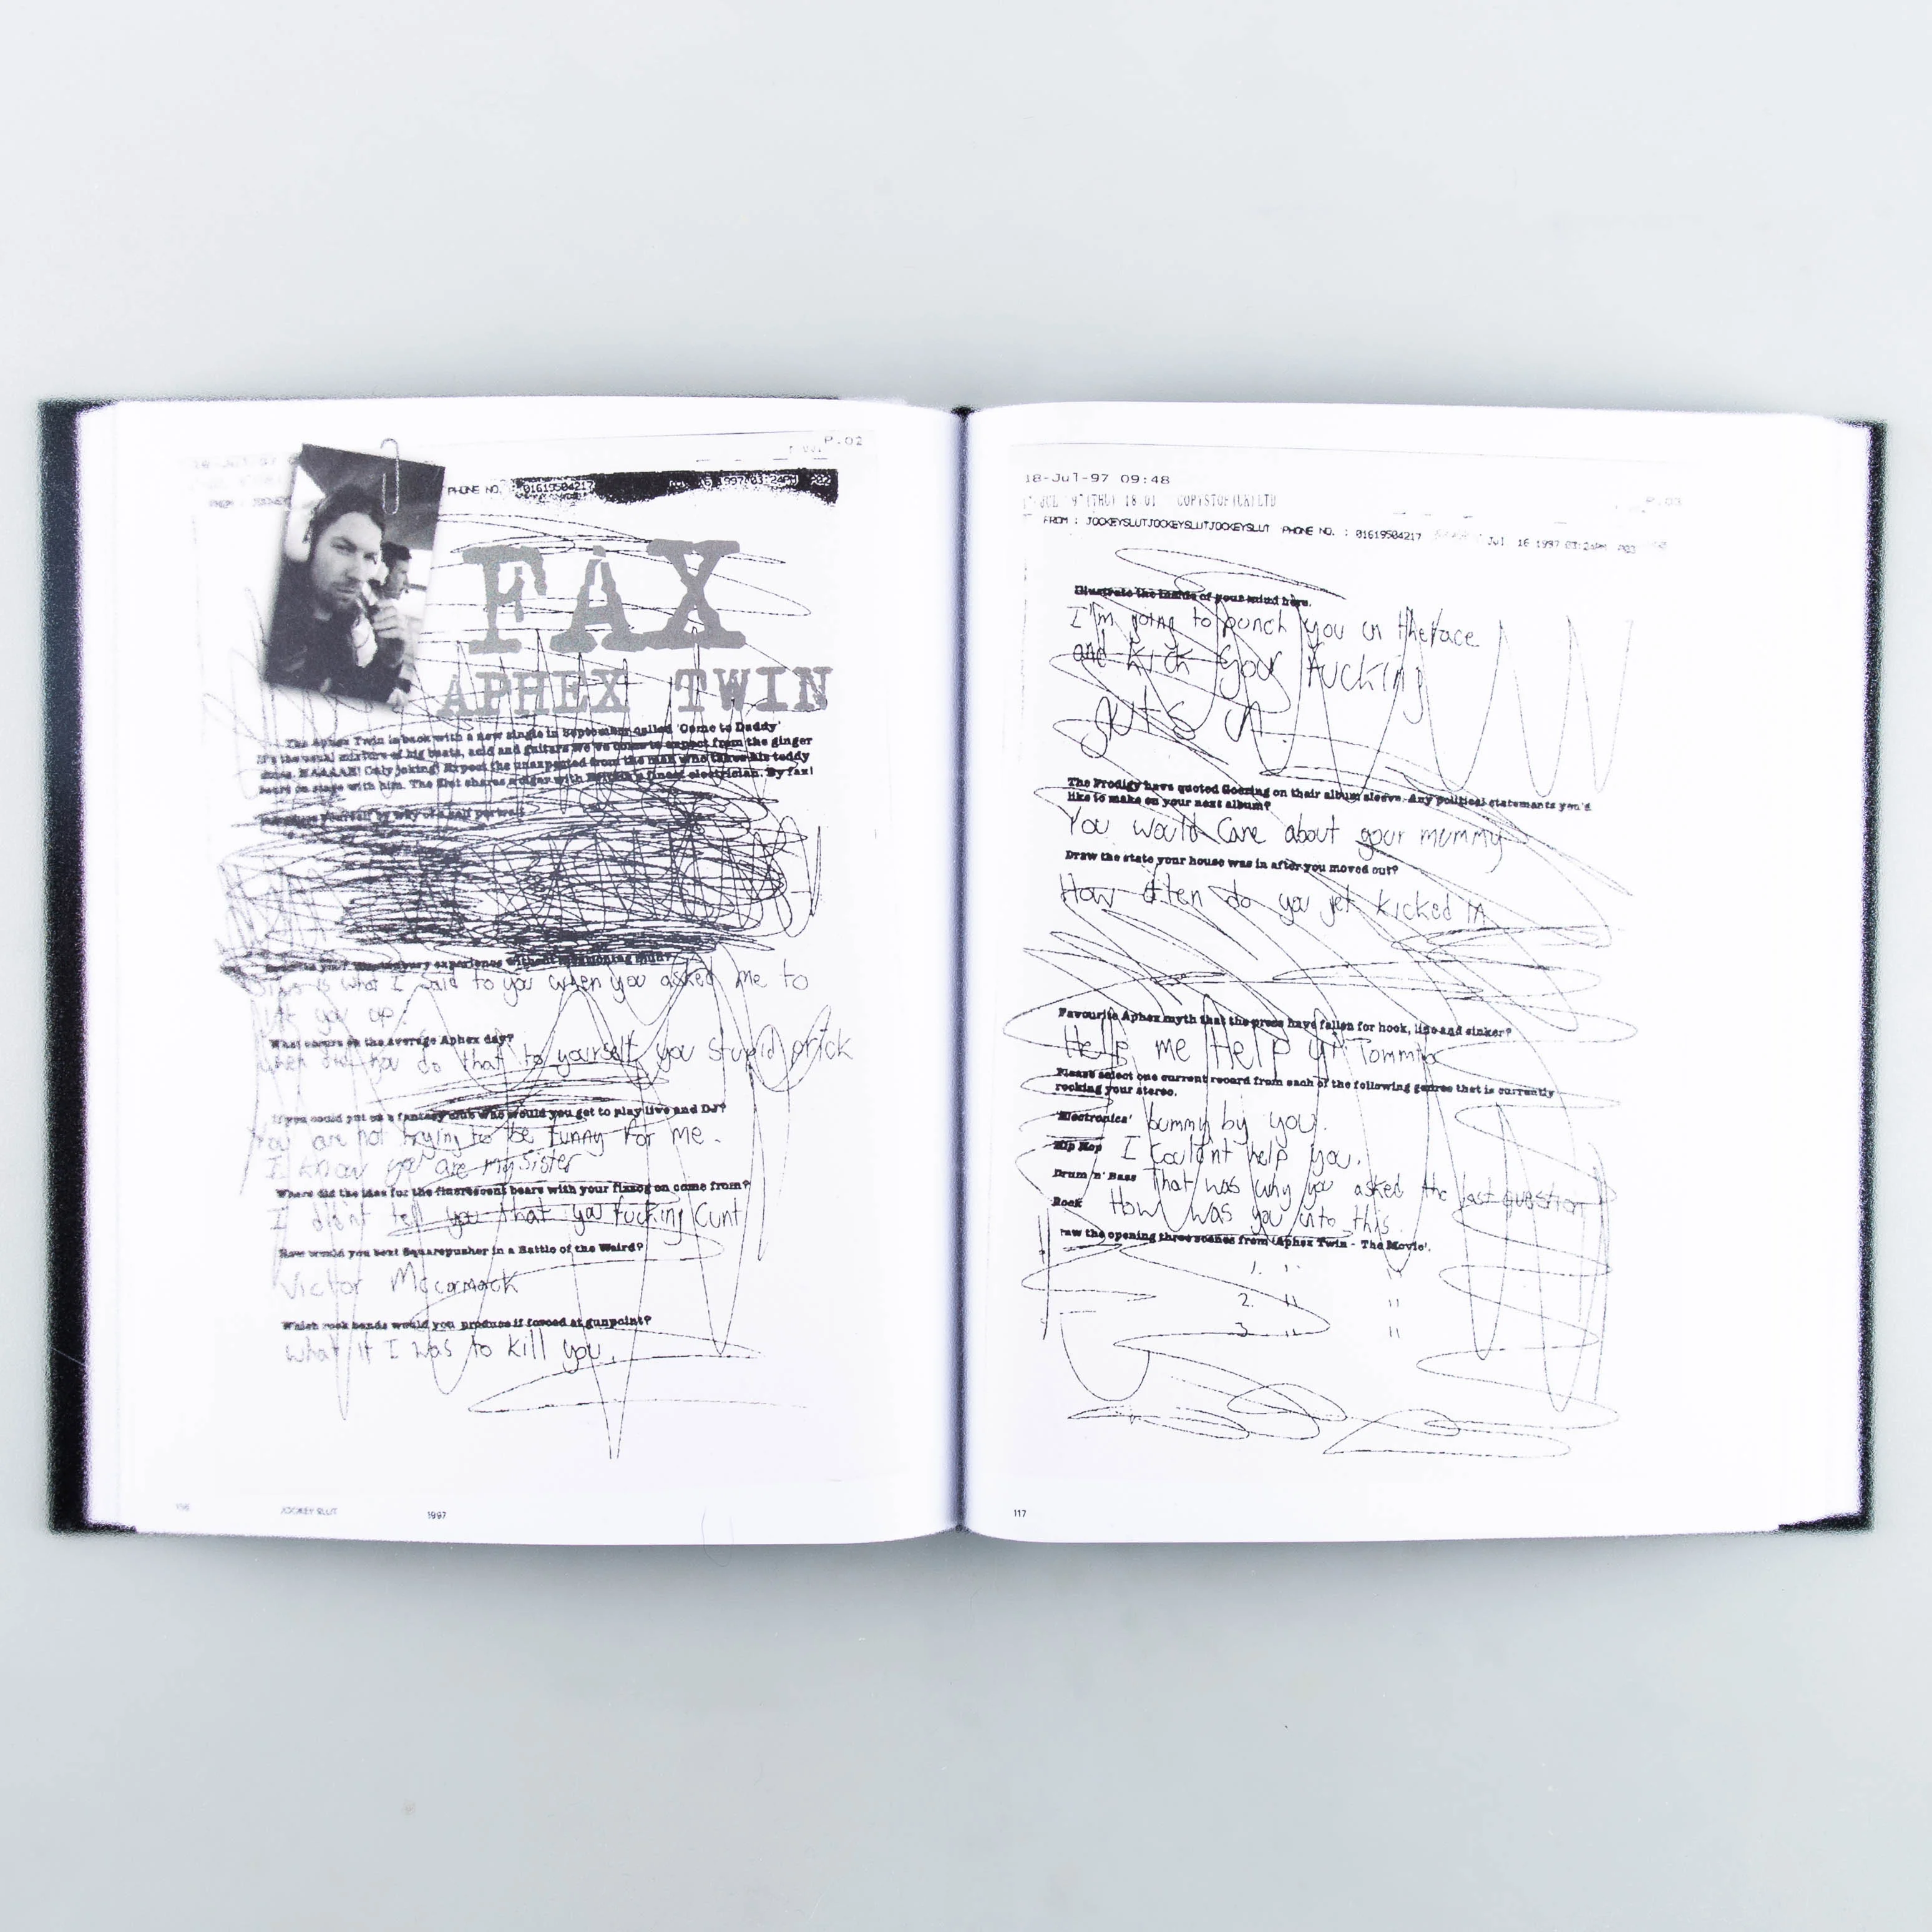 P.02
PHONE NO. : 01619504217 Jul. 16 1997 03:24PM P02
FAX
APHEX TWIN
The Aphex Twin is back with a new single in September called 'Come to Daddy'
It's the usual mixture of big beats, acid and guitars we've come to expect from the ginger
HAAAAR! Only joking! Expect the unexpected from the man who takes his teddy
bears on stage with him. The Slut shares a cigar with finest electrician. By fax!
yourself by way of a self portrait
experience without mentioning mud?
This is what I said to you when you asked me to
you up.
What occurs on the average Aphex day?
When did you do that to yourself you stupid prick
If you could put on a fantasy club who would you get to play live and DJ?
You are not trying to be funny for me.
I know you are my sister
Where did the idea for the fluorescent bears with your fizzog on come from?
I didn't tell you that you fucking cunt
How would you beat Squarepusher in a Battle of the Weird?
Victor Mccormack
Which rock bands would you produce if forced at gunpoint?
what if I was to kill you.
116
JOCKEY SLUT
1997
18-Jul-97 09:48
18:01 COPYSTOF(UK)LTD
P.03
FROM : JOCKEYSLUTJOCKEYSLUTJOCKEYSLUT PHONE NO. : 01619504217 Jul. 16 1997 03:24PM P03
Illustrate the inside of your mind here.
I'm going to punch you in the face
and kick your fucking
guts in.
The Prodigy have quoted Goering on their album sleeve. Any political statements you'd
like to make on your next album?
You would care about your mummy
Draw the state your house was in after you moved out?
How often do you get kicked in
Favourite Aphex myth that the press have fallen for hook, line and sinker?
Help me Help Tommix
Please select one current record from each of the following genres that is currently
rocking your stereo.
'Electronica' bummy by you.
Hip Hop I couldn't help you.
Drum 'n' Bass That was why you asked the last question
Rock How was you into this
raw the opening three scenes from 'Aphex Twin - The Movie'.
1. " "
2. " "
3. " "
117